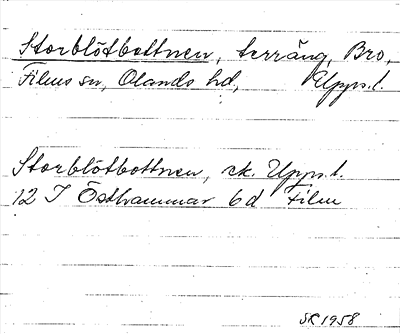 Storblötbottnen, terräng, Bro,
Films sn, Olands hd, Upps.l.
Storblötbottnen, ek. Upps.l.
12 I Östhammar 6 d Film
SR 1958